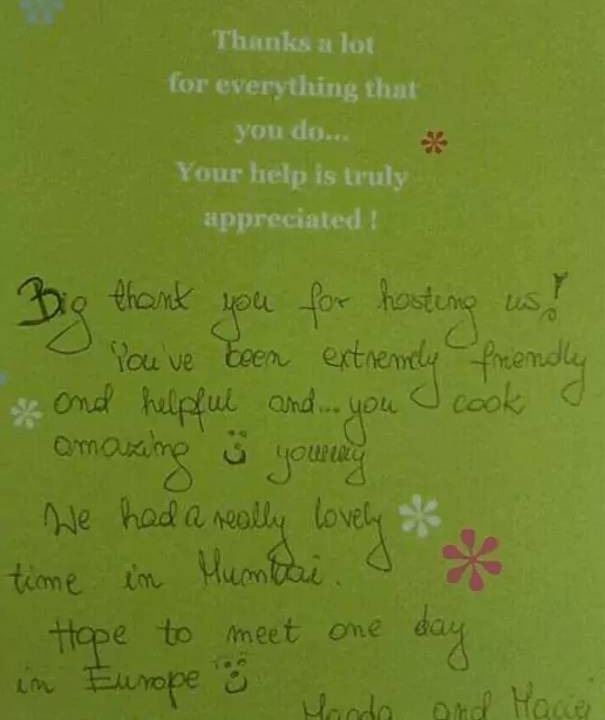 Thanks a lot
for everything that
you do...
Your help is truly
appreciated !
Big thank you for hosting us!
You've been extremely friendly
and helpful and... you cook
amazing
We had a really lovely
time in Mumbai.
Hope to meet one day
in Europe
and